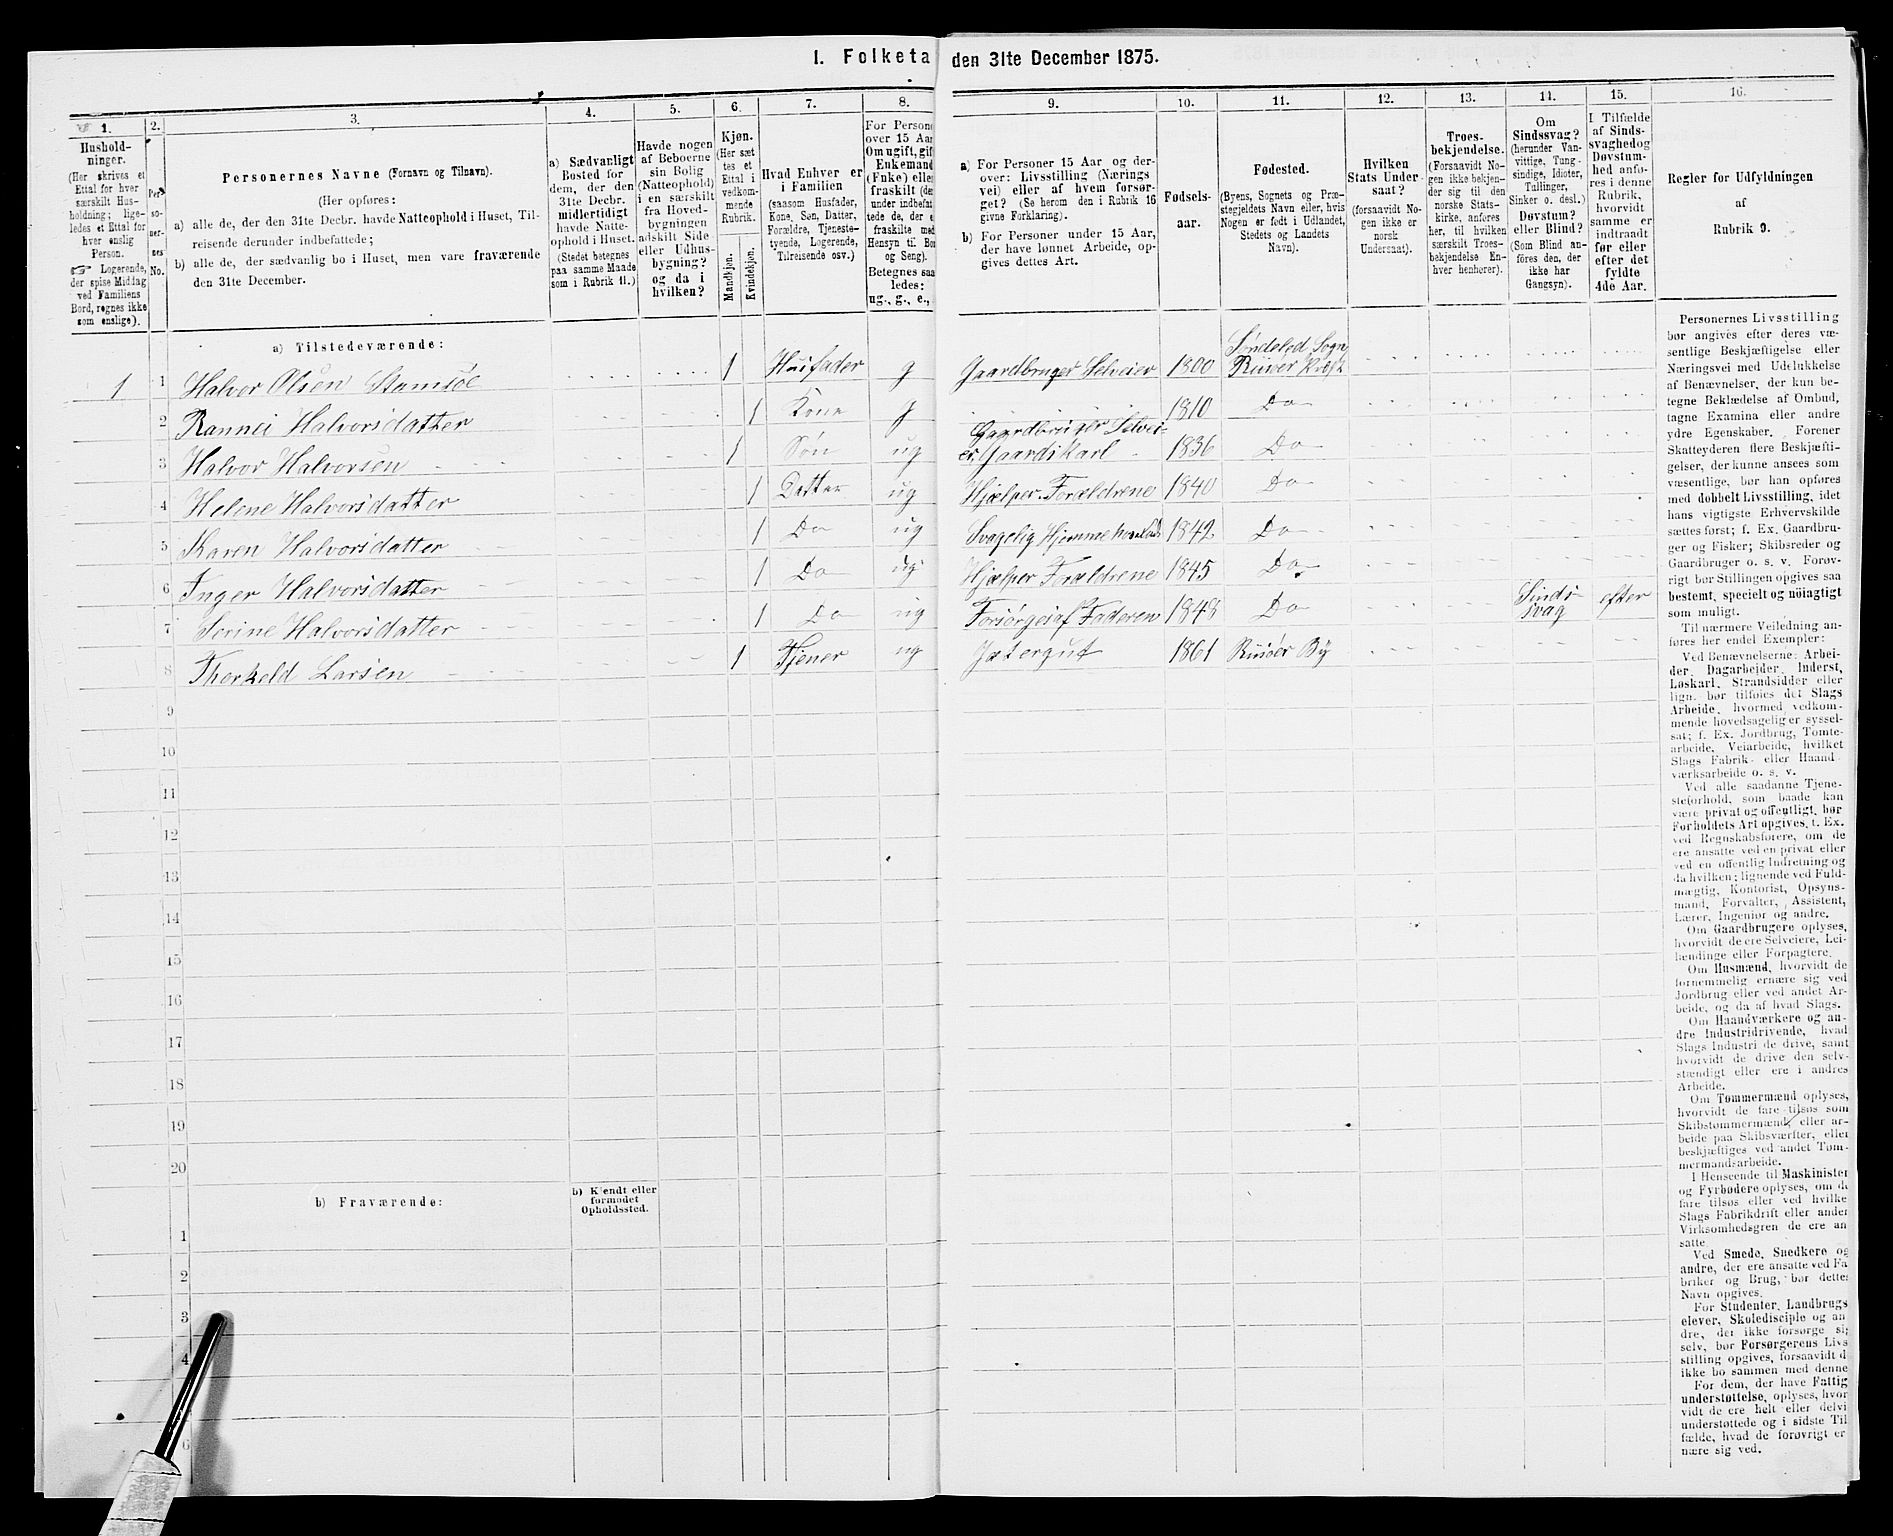 I. Folketa den 31te December 1875.
1. 2. 3. 4. 5. 6. 7. 8. 9. 10. 11. 12. 13. 14. 15. 16.
Hushold-
ninger.
(Her skrives et
Ettal for hver
særskilt Hus-
holdning; lige-
ledes et Ettal for
hver enslig
Person.
☞ Logerende,
der spise Middag
ved Familiens
Bord, regnes ikke
som enslige).
Per-
so-
ner-
nes
No.
Personernes Navne (Fornavn og Tilnavn).
(Her opføres:
a) alle de, der den 31te Decbr. havde Natteophold i Huset, Til-
reisende derunder indbefattede;
b) alle de, der sædvanlig bo i Huset, men vare fraværende
den 31te December.
a) Sædvanligt
Bosted for
dem, der den
31te Decbr.
midlertidigt
havde Natte-
ophold i Huset.
(Stedet betegnes
paa samme Maade
som i Rubrik 11.)
Havde nogen
af Beboerne
sin Bolig
(Natteophold)
i en særskilt
fra Hoved-
bygningen
adskilt Side
eller Udhus-
bygning?
og da i
hvilken?
Kjøn.
(Her sæt-
tes et
Ettal i
vedkom-
mende
Rubrik.
Mandkjøn.
Kvindekjøn.
Hvad Enhver er
i Familien
(saasom Husfader,
Kone, Søn, Datter,
Forældre, Tjeneste-
tyende, Logerende,
Tilreisende osv.)
For Persone
over 15 Aar
Om ugift, gift
Enkemand
(Enke) elle
fraskilt (der
under indbefat-
tede de, der e
fraskilte med
Hensyn til Bo
og Seng).
Betegnes saa
ledes:
ug., g., e.,
a) For Personer 15 Aar og der-
over: Livsstilling (Nærings-
vei) eller af hvem forsør-
get? (Se herom den i Rubrik 16
givne Forklaring).
b) For Personer under 15 Aar,
der have lønnet Arbeide, op-
gives dettes Art.
Fødsels-
aar.
Fødested.
(Byens, Sognets og Præ-
stegjeldets Navn eller, hvis
Nogen er født i Udlandet,
Stedets og Landets
Navn).
Hvilken
Stats Under-
saat?
(forsaavidt No-
gen ikke er
norsk
Undersaat).
Troes-
bekjendelse.
(Forsaavidt No-
gen ikke bekjen-
der sig til den
norske Stats-
kirke, anføres
her, til hvilken
særskilt Troes-
bekjendelse En-
hver henhører).
Om
Sindssvag?
(herunder Van-
vittige, Tung-
sindige, Idioter,
Tullinger,
Sinker o. desl.)
Døvstum?
eller Blind?
(Som Blind an-
føres den, der
ikke har
Gangsyn).
I Tilfælde
af Sinds-
svaghed og
Døvstum-
hed anfø-
res i denne
Rubrik,
hvorvidt
samme er
indtraadt
før eller
efter det
fyldte
4de Aar.
Regler for Udfyldningen
af
Rubrik 9.
a) Tilstedeværende:
1 1 Halvor Olsen Stamsøe 1 Husfader g Gaardbruger Selveier 1800 Søndeled Sogn
Riisøer Præst
2 Rannei Halvorsdatter 1 Kone g 1810 Do
3 Halvor Halvorsen 1 Søn ug Gaardbruger Selvei-
er, Gaardskarl 1836 Do
4 Helene Halvorsdatter 1 Datter ug Hjælper Forældrene 1840 Do
5 Karen Halvorsdatter 1 Do ug Svagelig Hjemme 1842 Do
6 Inger Halvorsdatter 1 Do ug Hjælper Forældrene 1845 Do
7 Serine Halvorsdatter 1 Do ug Forsørges af Faderen 1848 Do Sinds-
svag efter
8 Thorkeld Larsen 1 Tjener ug Jætergut 1861 Riisøer By
9
10
11
12
13
14
15
16
17
18
19
20
b) Fraværende:
b) Kjendt eller
formodet
Opholdssted.
1
2
3
4
6
Personernes Livsstilling
bør angives efter deres væ-
sentlige Beskjæftigelse eller
Næringsvei med Udelukkelse
af Benævnelser, der kun be-
tegne Beklædelse af Ombud,
tagne Examina eller andre
ydre Egenskaber. Forener
Skatteyderen flere Beskjæfti-
gelser, der kunne ansees som
væsentlige, bør han opføres
med dobbelt Livsstilling, idet
hans vigtigste Erhvervskilde
sættes først; f. Ex. Gaardbru-
ger og Fisker; Skibsreder og
Gaardbruger o. s. v. Forøv-
rigt bør Stillingen opgives saa
bestemt, specielt og nöiagtigt
som muligt.
Til nærmere Veiledning an-
føres her endel Exempler:
Ved Benævnelserne: Arbei-
der, Dagarbeider, Inderst,
Løskarl, Strandsidder eller
lign. bør tilføies det Slags
Arbeide, hvormed vedkom-
mende hovedsagelig er syssel-
sat; f. Ex. Jordbrug, Tomte-
arbeide, Veiarbeide, hvilket
Slags Fabrik- eller Haand-
værksarbeide o. s. v.
Ved alle saadanne Tjene-
steforhold, som baade kan
være privat og offentligt, bør
Forholdets Art opgives, f. Ex.
ved Regnskabsførere, om de
ere ansatte ved en privat eller
ved en offentlig Indretning og
da hvilken; lignende ved Fuld-
mægtig, Kontorist, Opsyns-
mand, Forvalter, Assistent,
Lærer, Ingeniør og andre.
Om Gaardbrugere oplyses,
hvorvidt de ere Selveiere, Lei-
lændinge eller Forpagtere.
Om Husmænd, hvorvidt de
fornemmelig ernære sig ved
Jordbrug eller ved andet Ar-
beide, og da af hvad Slags.
Om Haandværkere og an-
dre Industridrivende, hvad
Slags Industri de drive, samt
hvorvidt de drive den selv-
stændigt eller ere i andres
Arbeide.
Om Tømmermænd oplyses,
hvorvidt de fare tilsøs som
Skibstømmermænd, eller ar-
beide paa Skibsværfter, eller
beskjæftiges ved andet Tøm-
mermandsarbeide.
I Henseende til Maskinister
og Fyrbødere oplyses, om de
fare tilsøs eller ved hvilke
Slags Fabrikdrift eller ander
Virksomhedsgren de ere an
satte.
Ved Smede, Snedkere og
andre, der ere ansatte ved Fa
briker og Brug, bør dettes
Navn opgives.
For Studenter, Landbrugs
elever, Skoledisciple og an
dre, der ikke forsørge sig
selv, bør Forsørgerens Livs
stilling opgives, forsaavidt d
ikke bo sammen med denne
For dem, der have Fattig
understøttelse, oplyses, hvor
vidt de ere helt eller delvi
understøttede og i sidste Til
fælde, hvad de forøvrigt er
nære sig ved.